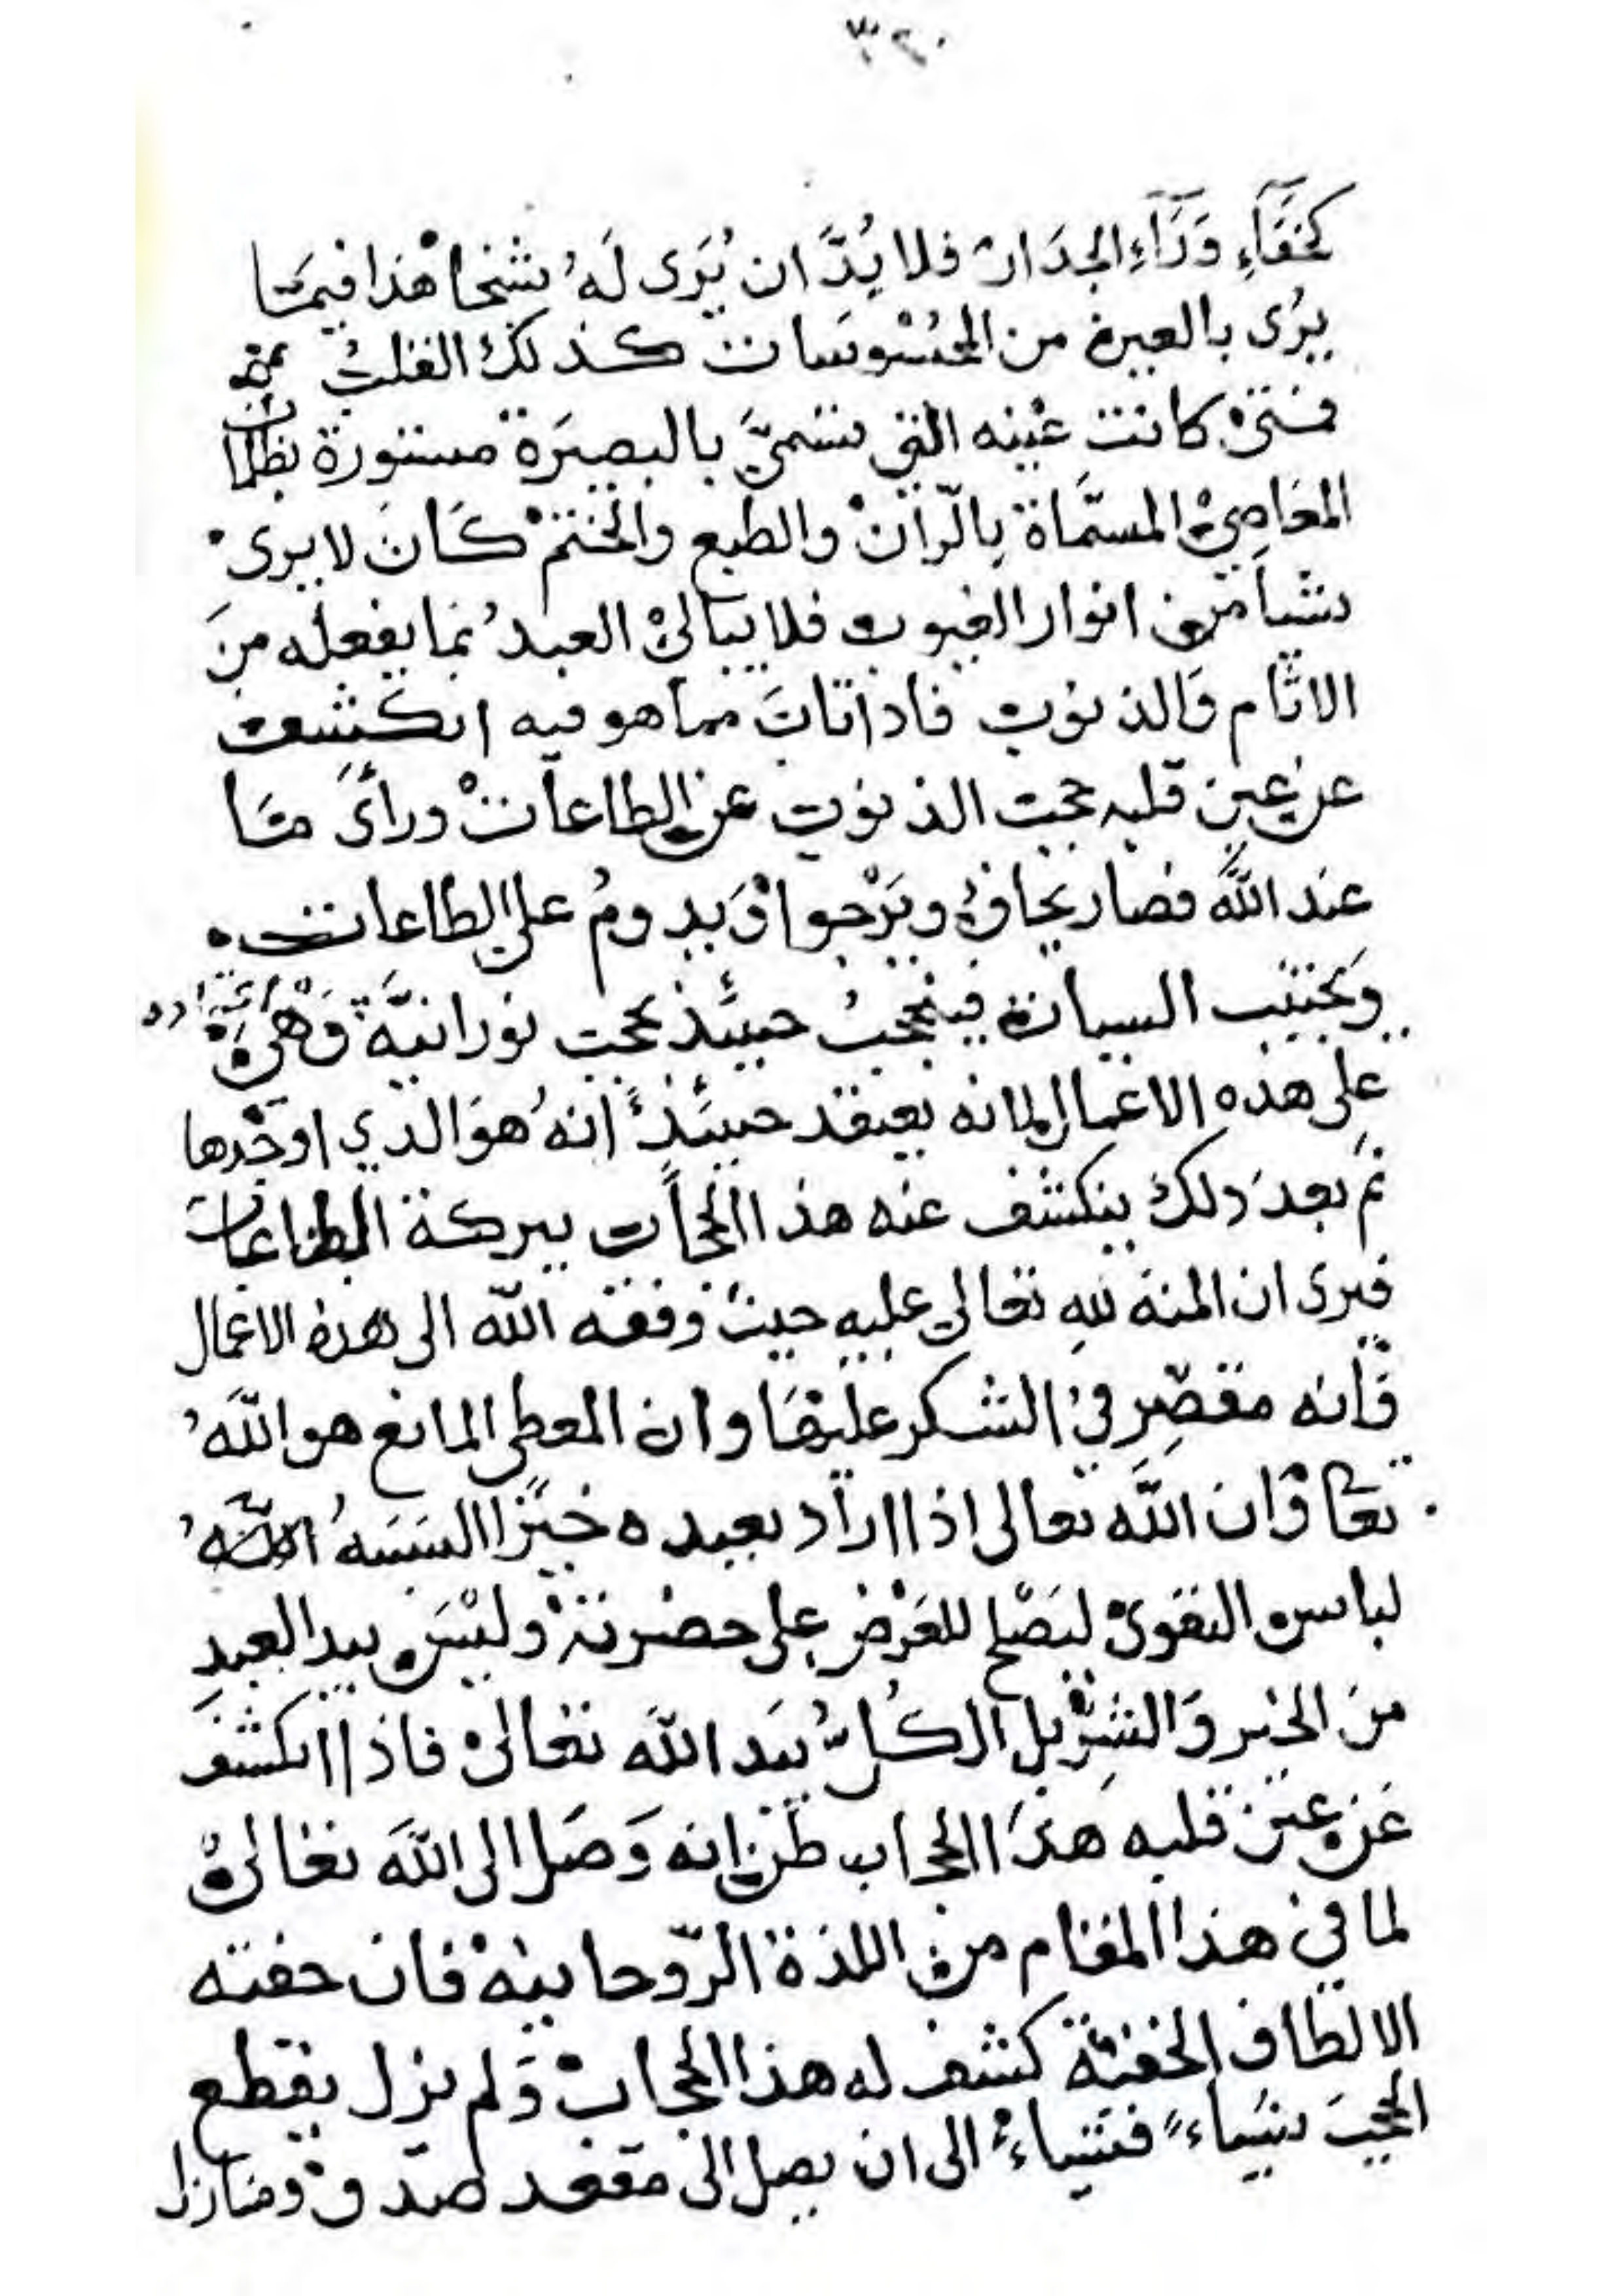 ٣٢٠
كخفاءِ وَرَآءِ الجدَار فلا بُدَّ ان يُرَى لَهُ شخا هذا فيمَا
يرُى بالعين من المحسُوسَات كذلك القلبُ
فمتىْ كانت عينه التي تسمىَّ بالبصيَرة مستورة بظلمات
المعَاصِيْ المسمَّاة بالرّان والطبع والختم كانَ لا يرىْ
شيأ من انوار الغيوب فلا يباليْ العبدُ بما يفعله منَ
الاثام وَالذنوب فاذا تابَ مما هو فيه انكشف
عن عين قلبه حجب الذنوب عن الطاعات ورأىَ مَا
عند اللَّه فصار يخاف ويَرْجوا وَيدومُ على الطاعات
وَيجتنب السيات فينحجبُ حينئذ بحجب نورانيَّة وَهيْ
على هذه الاعمال لانه يعتقد حينئذٍ انهُ هوَ الذي اوجْدها
ثم بعدَ ذلك ينكشف عنه هذا الحجاب ببركة الطاعات
فيرى ان المنة للهِ تعالى عليه حيث وفقه اللّه الى هذه الاعمال
وَأنه مقصِّر في الشكر عليهَا وان المعطى المانع هو اللّهُ
تعا وَان اللَّه تعالى اذا اراد بعبده خيرًا البسَهُ اللّهُ
لباس التقوىْ ليَصْلح للعَرْض على حضرته وليْسَ بيد العبدِ
منَ الخير وَالشرِّ بل الكُلُّ بيَد اللّه تعالىْ فاذا انكشفَ
عَن عين قلبه هذَا الحجاب ظن انه وَصَل الى اللّه تعالىْ
لما في هذا المقام من اللذة الرّوحانيهْ فان حفته
الالطاف الخفيّة كشف له هذا الحجابْ وَلم يزل يقطع
الحجبَ شيأءً فشيأءً الى ان يصل الى مقعد صدقْ ومنازل